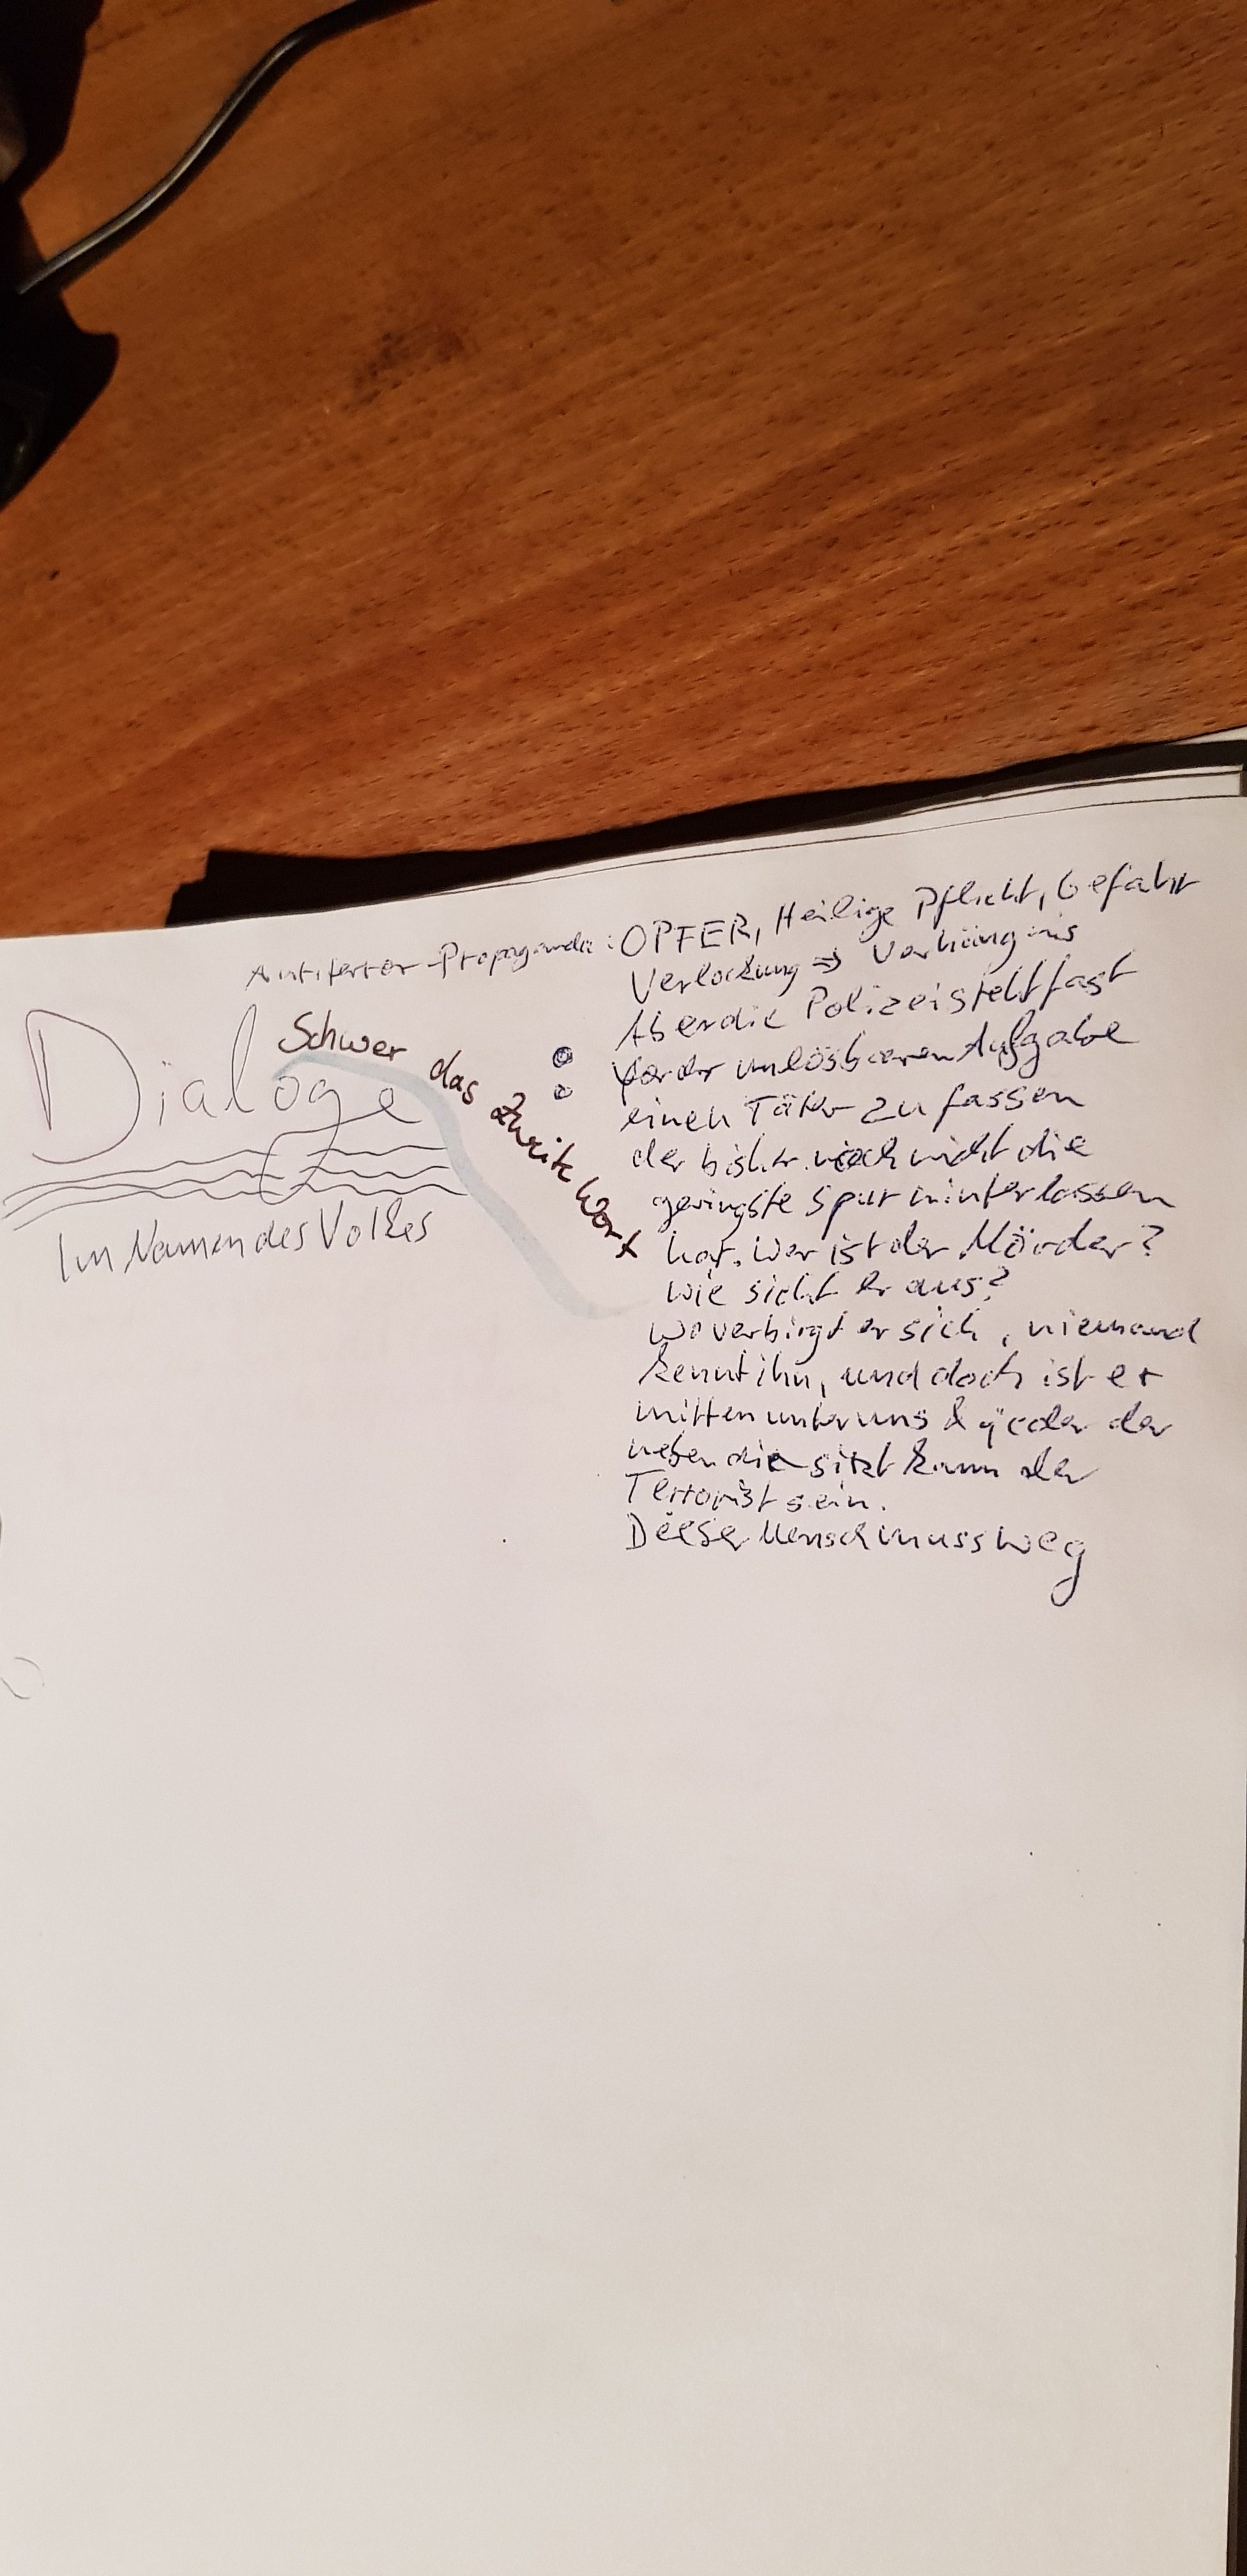 Antiterror-Propaganda: OPFER, Heilige Pflicht, Gefahr
Verlockung => Verhängnis
Dialoge
Im Namen des Volkes
Schwer das zweite Wort
:
Aber die Polizei steht fast
vor der unlösbaren Aufgabe
einen Täter zu fassen
der bisher noch nicht die
geringste Spur hinterlassen
hat. Wer ist der Mörder?
Wie sieht er aus?
Wo verbirgt er sich, niemand
kennt ihn, und doch ist er
mitten unter uns & jeder der
neben die sitzt kann der
Terrorist sein.
Dieser Mensch muss weg